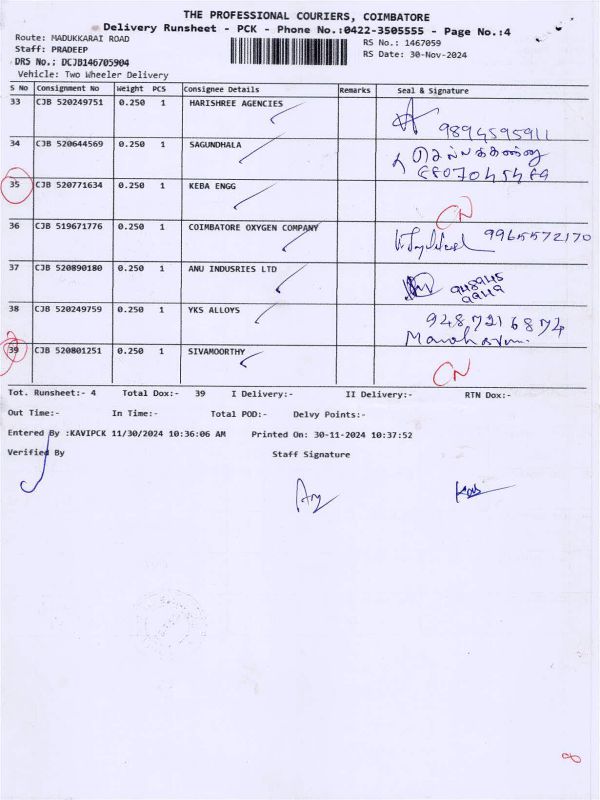 THE PROFESSIONAL COURIERS, COIMBATORE
Delivery Runsheet - PCK - Phone No.:0422-3505555 - Page No.:4
Route: MADUKKARAI ROAD RS No.: 1467059
Staff: PRADEEP RS Date: 30-Nov-2024
DRS No.: DCJB146705904
Vehicle: Two Wheeler Delivery
S No Consignment No Weight PCS Consignee Details Remarks Seal & Signature
33 CJB 520249751 0.250 1 HARISHREE AGENCIES
9894595911
34 CJB 520644569 0.250 1 SAGUNDHALA
35 CJB 520771634 0.250 1 KEBA ENGG
CN
36 CJB 519671776 0.250 1 COIMBATORE OXYGEN COMPANY 9965572170
37 CJB 520890180 0.250 1 ANU INDUSRIES LTD
948945
9949
38 CJB 520249759 0.250 1 YKS ALLOYS 9487216874
39 CJB 520801251 0.250 1 SIVAMOORTHY
CN
Tot. Runsheet:- 4 Total Dox:- 39 I Delivery:- II Delivery:- RTN Dox:-
Out Time:- In Time:- Total POD:- Delvy Points:-
Entered By :KAVIPCK 11/30/2024 10:36:06 AM Printed On: 30-11-2024 10:37:52
Verified By Staff Signature